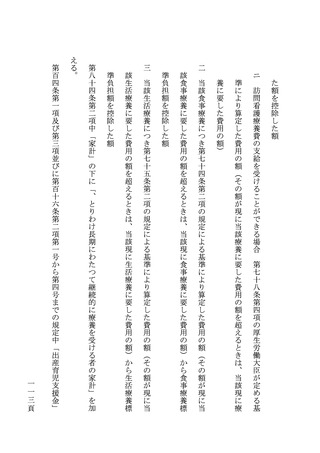 た額を控除した額
ニ　訪問看護療養費の支給を受けることができる場合　第七十八条第四項の厚生労働大臣が定める基
準により算定した費用の額（その額が現に当該療養に要した費用の額を超えるときは、当該現に療
養に要した費用の額）
二　当該食事療養につき第七十四条第二項の規定による基準により算定した費用の額（その額が現に当
該食事療養に要した費用の額を超えるときは、当該現に食事療養に要した費用の額）から食事療養標
準負担額を控除した額
三　当該生活療養につき第七十五条第二項の規定による基準により算定した費用の額（その額が現に当
該生活療養に要した費用の額を超えるときは、当該現に生活療養に要した費用の額）から生活療養標
準負担額を控除した額
第八十四条第二項中「家計」の下に「、とりわけ長期にわたつて継続的に療養を受ける者の家計」を加
える。
第百四条第一項及び第三項並びに第百十六条第二項第一号から第四号までの規定中「出産育児支援金」
一一三頁